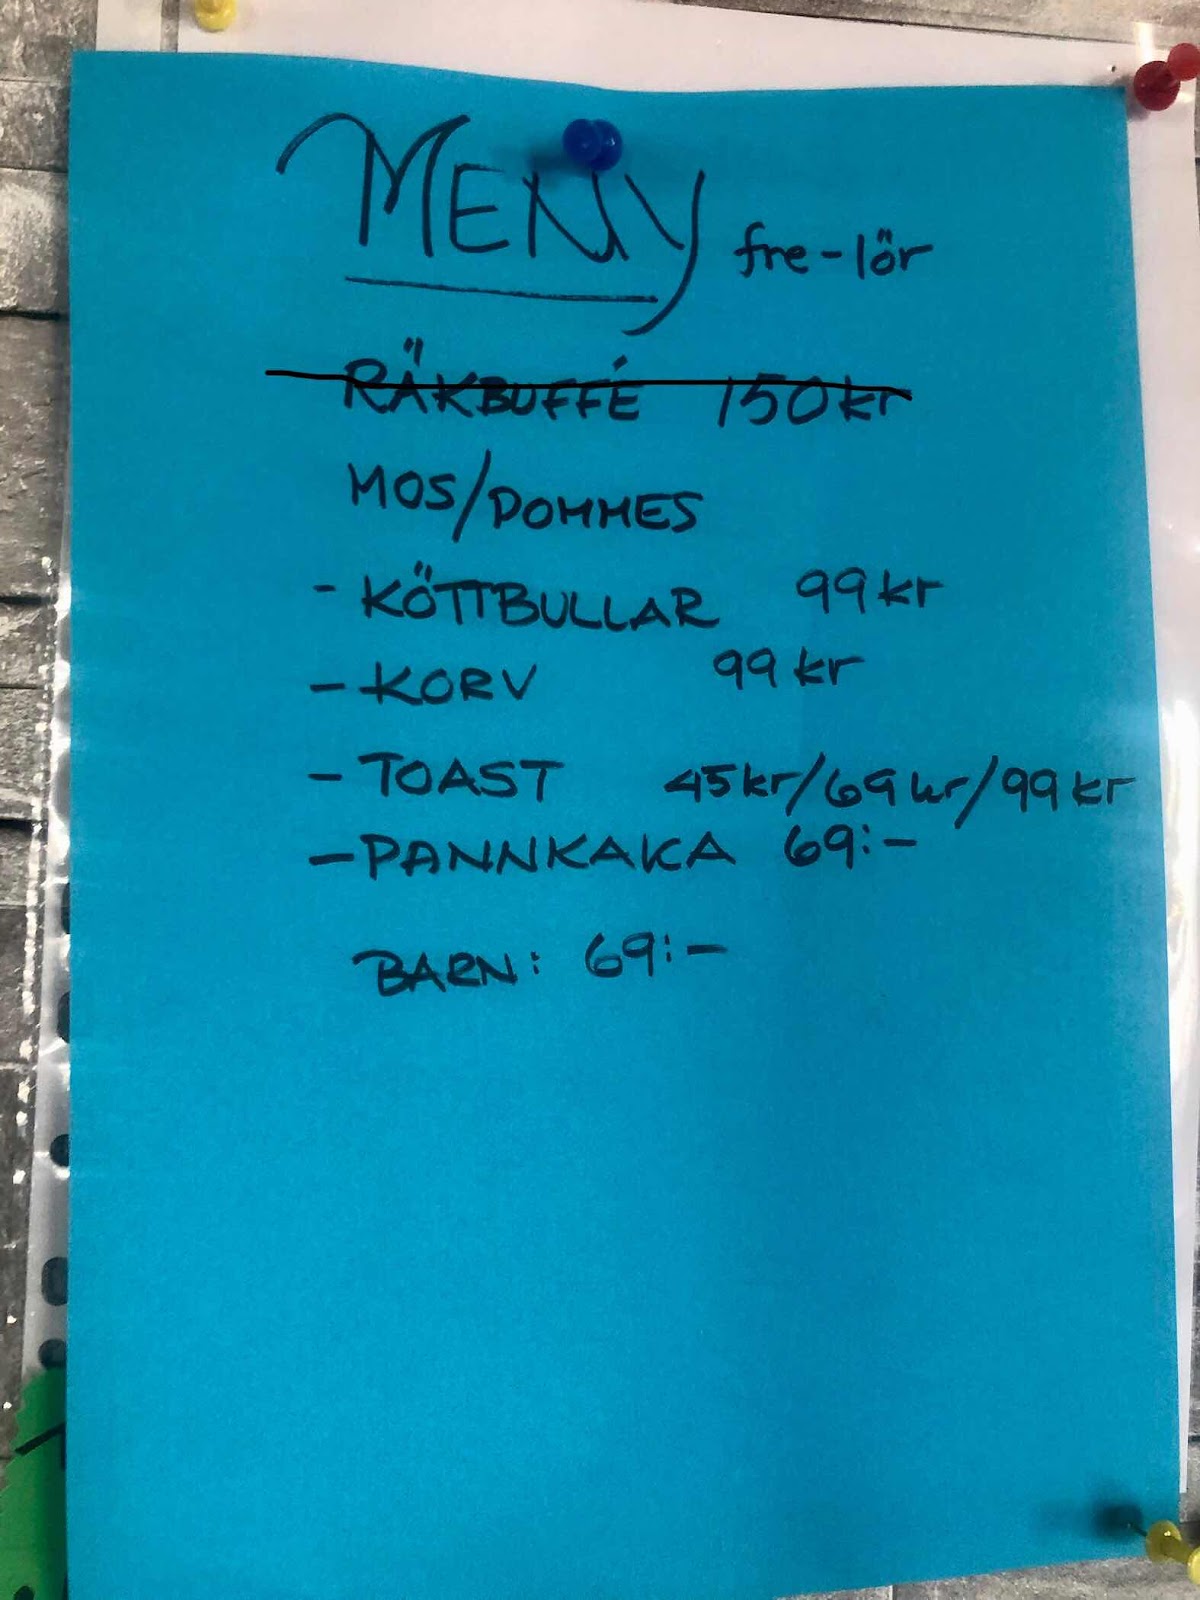 MENY fre-lör
RÄKBUFFÉ 150kr
MOS/POMMES
- KÖTTBULLAR 99kr
- KORV 99kr
- TOAST 45kr/69kr/99kr
- PANNKAKA 69:-
BARN: 69:-